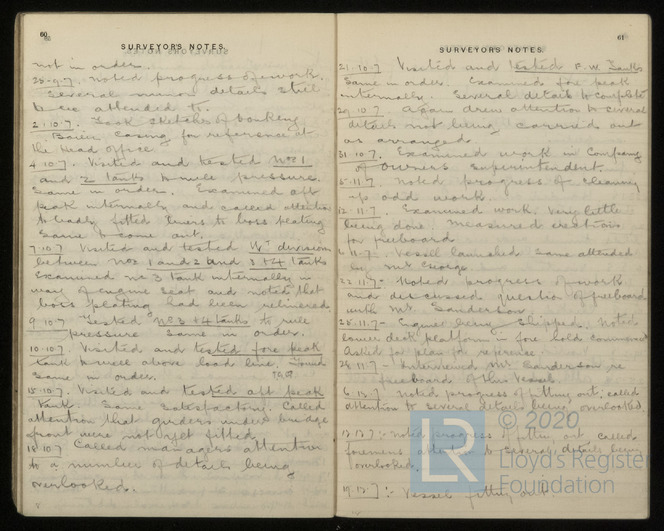 60
SURVEYOR'S NOTES.
not in order.
28-9-7. Noted progress of work.
Several minor details still
to be attended to.
2.10.7. Took sketches of bunking
Boiler casing for reference at
the Head Office.
4.10.7. Visited and tested Nos 1
and 2 tanks to rule pressure.
Same in order. Examined aft
peak internally and called attention
to badly fitted liners to boss plating
Same to come out.
7.10.7 Visited and tested W.T. divisions
between Nos 1 and 2 and 3 + 4 tanks
Examined No 3 tank internally in
way of engine seat and noted that
boss plating had been relinered
9.10.7 Tested Nos 3 + 4 tanks to rule
pressure same in order.
10.10.7. Visited and tested fore peak
tank to well above load line. Found
same in order.
15.10.7. Visited and tested aft peak
tank. Same satisfactory. Called
attention that girders under bridge
front were not yet fitted.
18.10.7 Called managers attention
to a number of details being
overlooked.
61
SURVEYOR'S NOTES.
21.10.7 Visited and tested F.W. Tanks
Same in order. Examined fore peak
internally. Several details to complete
29.10.7 Again drew attention to several
details not being carried out
as arranged.
31.10.7. Examined work in Company
of Owners Superintendent.
5.11.7. Noted progress of cleaning
up odd work.
12.11.7. Examined work. Very little
being done. Measured erections
for freeboard
.11.7. Vessel launched same attended
by Mr George.
22.11.7- Noted progress of work
and discussed question of freeboard
with Mr Sanderson.
25.11.7- Engines being shipped. Noted
lower deck platform in fore hold commenced
Asked for plan for reference.
26.11.7- Interviewed Mr Sanderson re
freeboard of this Vessel.
6.12.7 Noted progress of fitting out, called
attention to several details being overlooked
13.12.7:- Noted progress of fitting out called
foremens attention to several details being
overlooked.
19.12.7:- Vessel fitting out
© 2020
LR
Lloyd's Register
Foundation